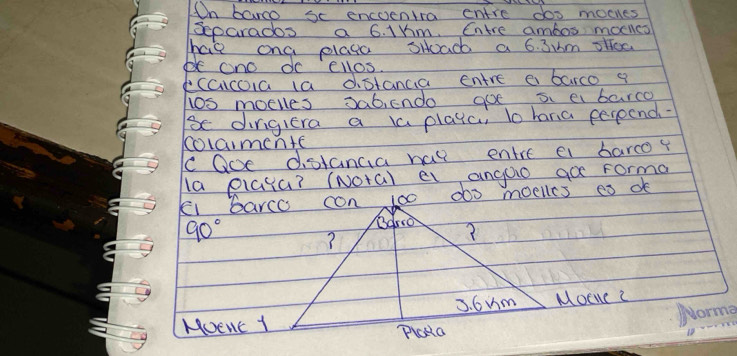 Un barco se encuentra entre dos moelles
Separados a 6.1Km. Entre ambos moelles
hay ona playa sitoado a 6.3Km
de ono de ellos.
calcola la distancia entre el barco y
los moelles sabiendo qoe si el barco
se dirigiera a la playa, lo haria perpend-
icolarmente
¿ Qoe distancia hay entre el barco y
la playa? (Nota) el angolo qoe forma
el barco con los dos moelles es de
90°
Barco
? ?
3.6Km Moelle 2
Moelle 1
Playa
Norma